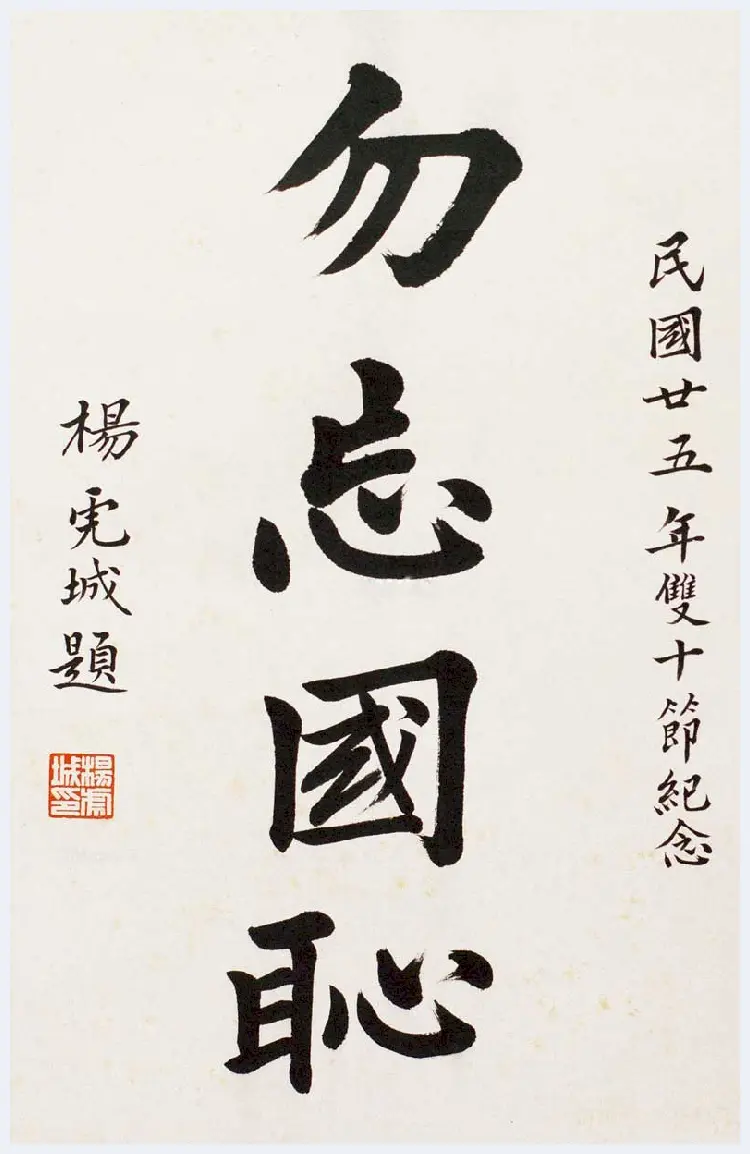 民國廿五年雙十節紀念
勿忘國恥
楊虎城題
楊虎
城印